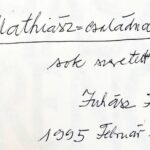 Mathiász=családna
sok szeretet
Juhász
1995 Február